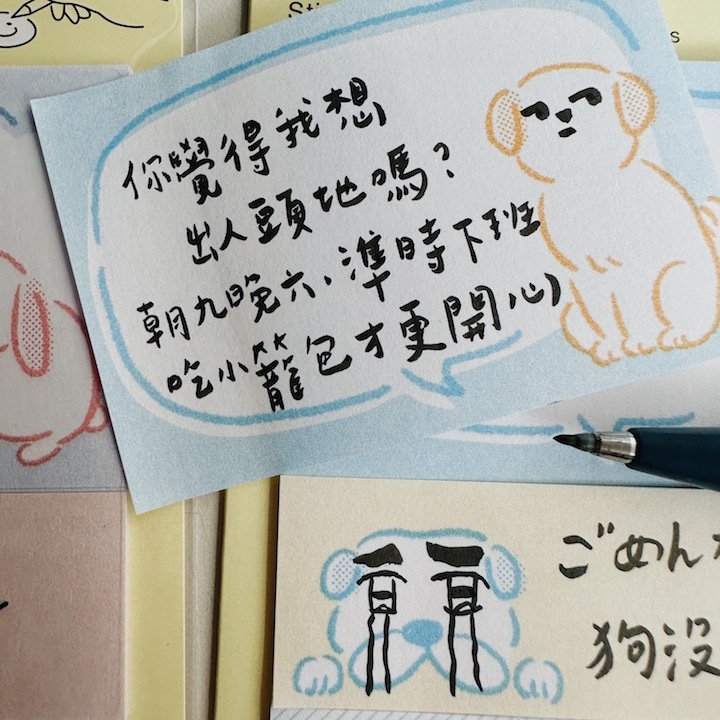 你覺得我想
出人頭地嗎?
朝九晚六、準時下班
吃小籠包才更開心
ごめん
狗沒